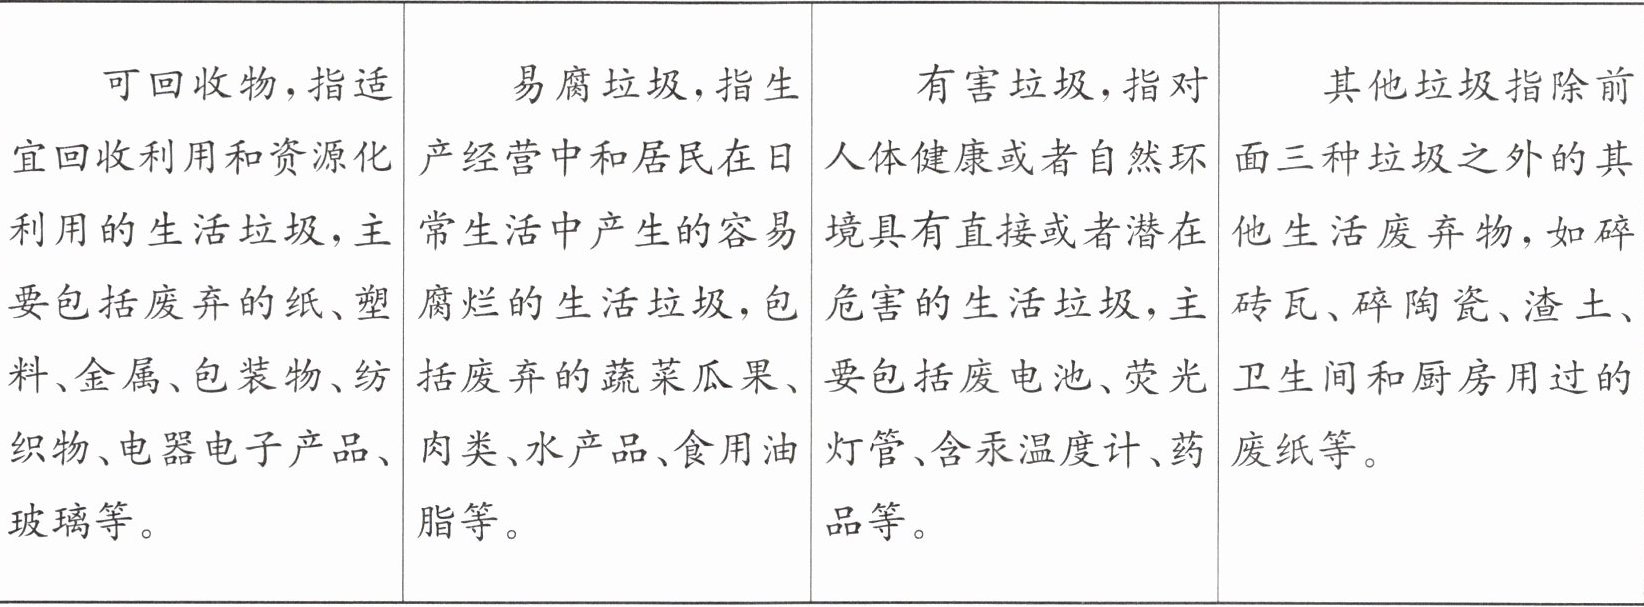 可回收物,指适
宜回收利用和资源化
利用的生活垃圾,主
要包括废弃的纸、塑
料、金属、包装物、纺
织物、电器电子产品、
玻璃等。
易腐垃圾,指生
产经营中和居民在日
常生活中产生的容易
腐烂的生活垃圾,包
括废弃的蔬菜瓜果、
肉类、水产品、食用油
脂等。
有害垃圾,指对
人体健康或者自然环
境具有直接或者潜在
危害的生活垃圾,主
要包括废电池、荧光
灯管、含汞温度计、药
品等。
其他垃圾指除前
面三种垃圾之外的其
他生活废弃物,如碎
砖瓦、碎陶瓷、渣土、
卫生间和厨房用过的
废纸等。